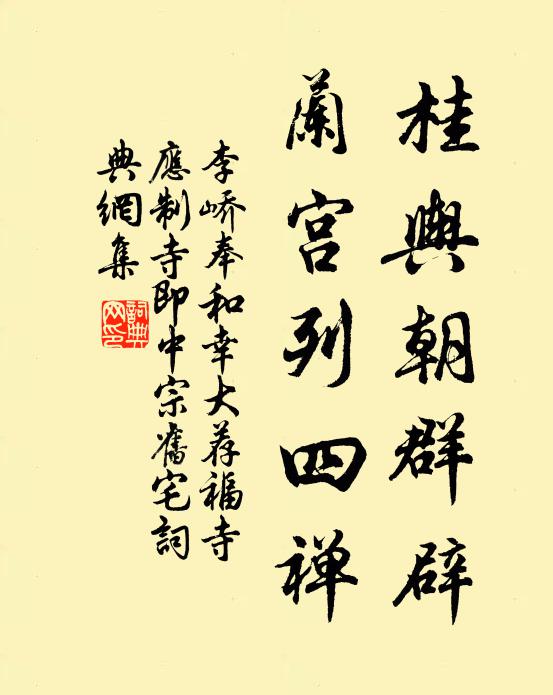 桂輿朝群辟
蘭宮列四禅
李嶠奉和幸大荐福寺
應制寺即中宗舊宅詞
典網集
詞典
网印